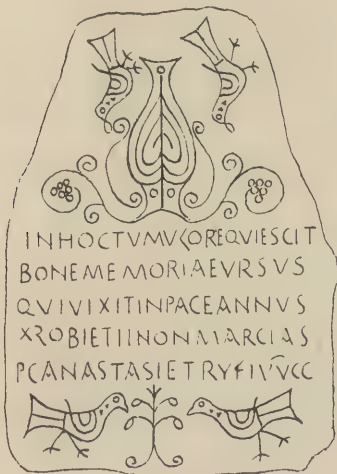 INHOCTVMVLOREQVIESCIT
BONEMEMORIAEVRSVS
QVIVIXITINPACEANNVS
XROBIETIINONMARCIAS
PCANASTASIETRVFIVVCC